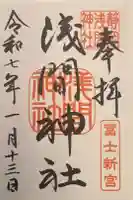 奉拝
静岡
浅間
神社
冨士新宮
浅間神社
令和七年一月十三日